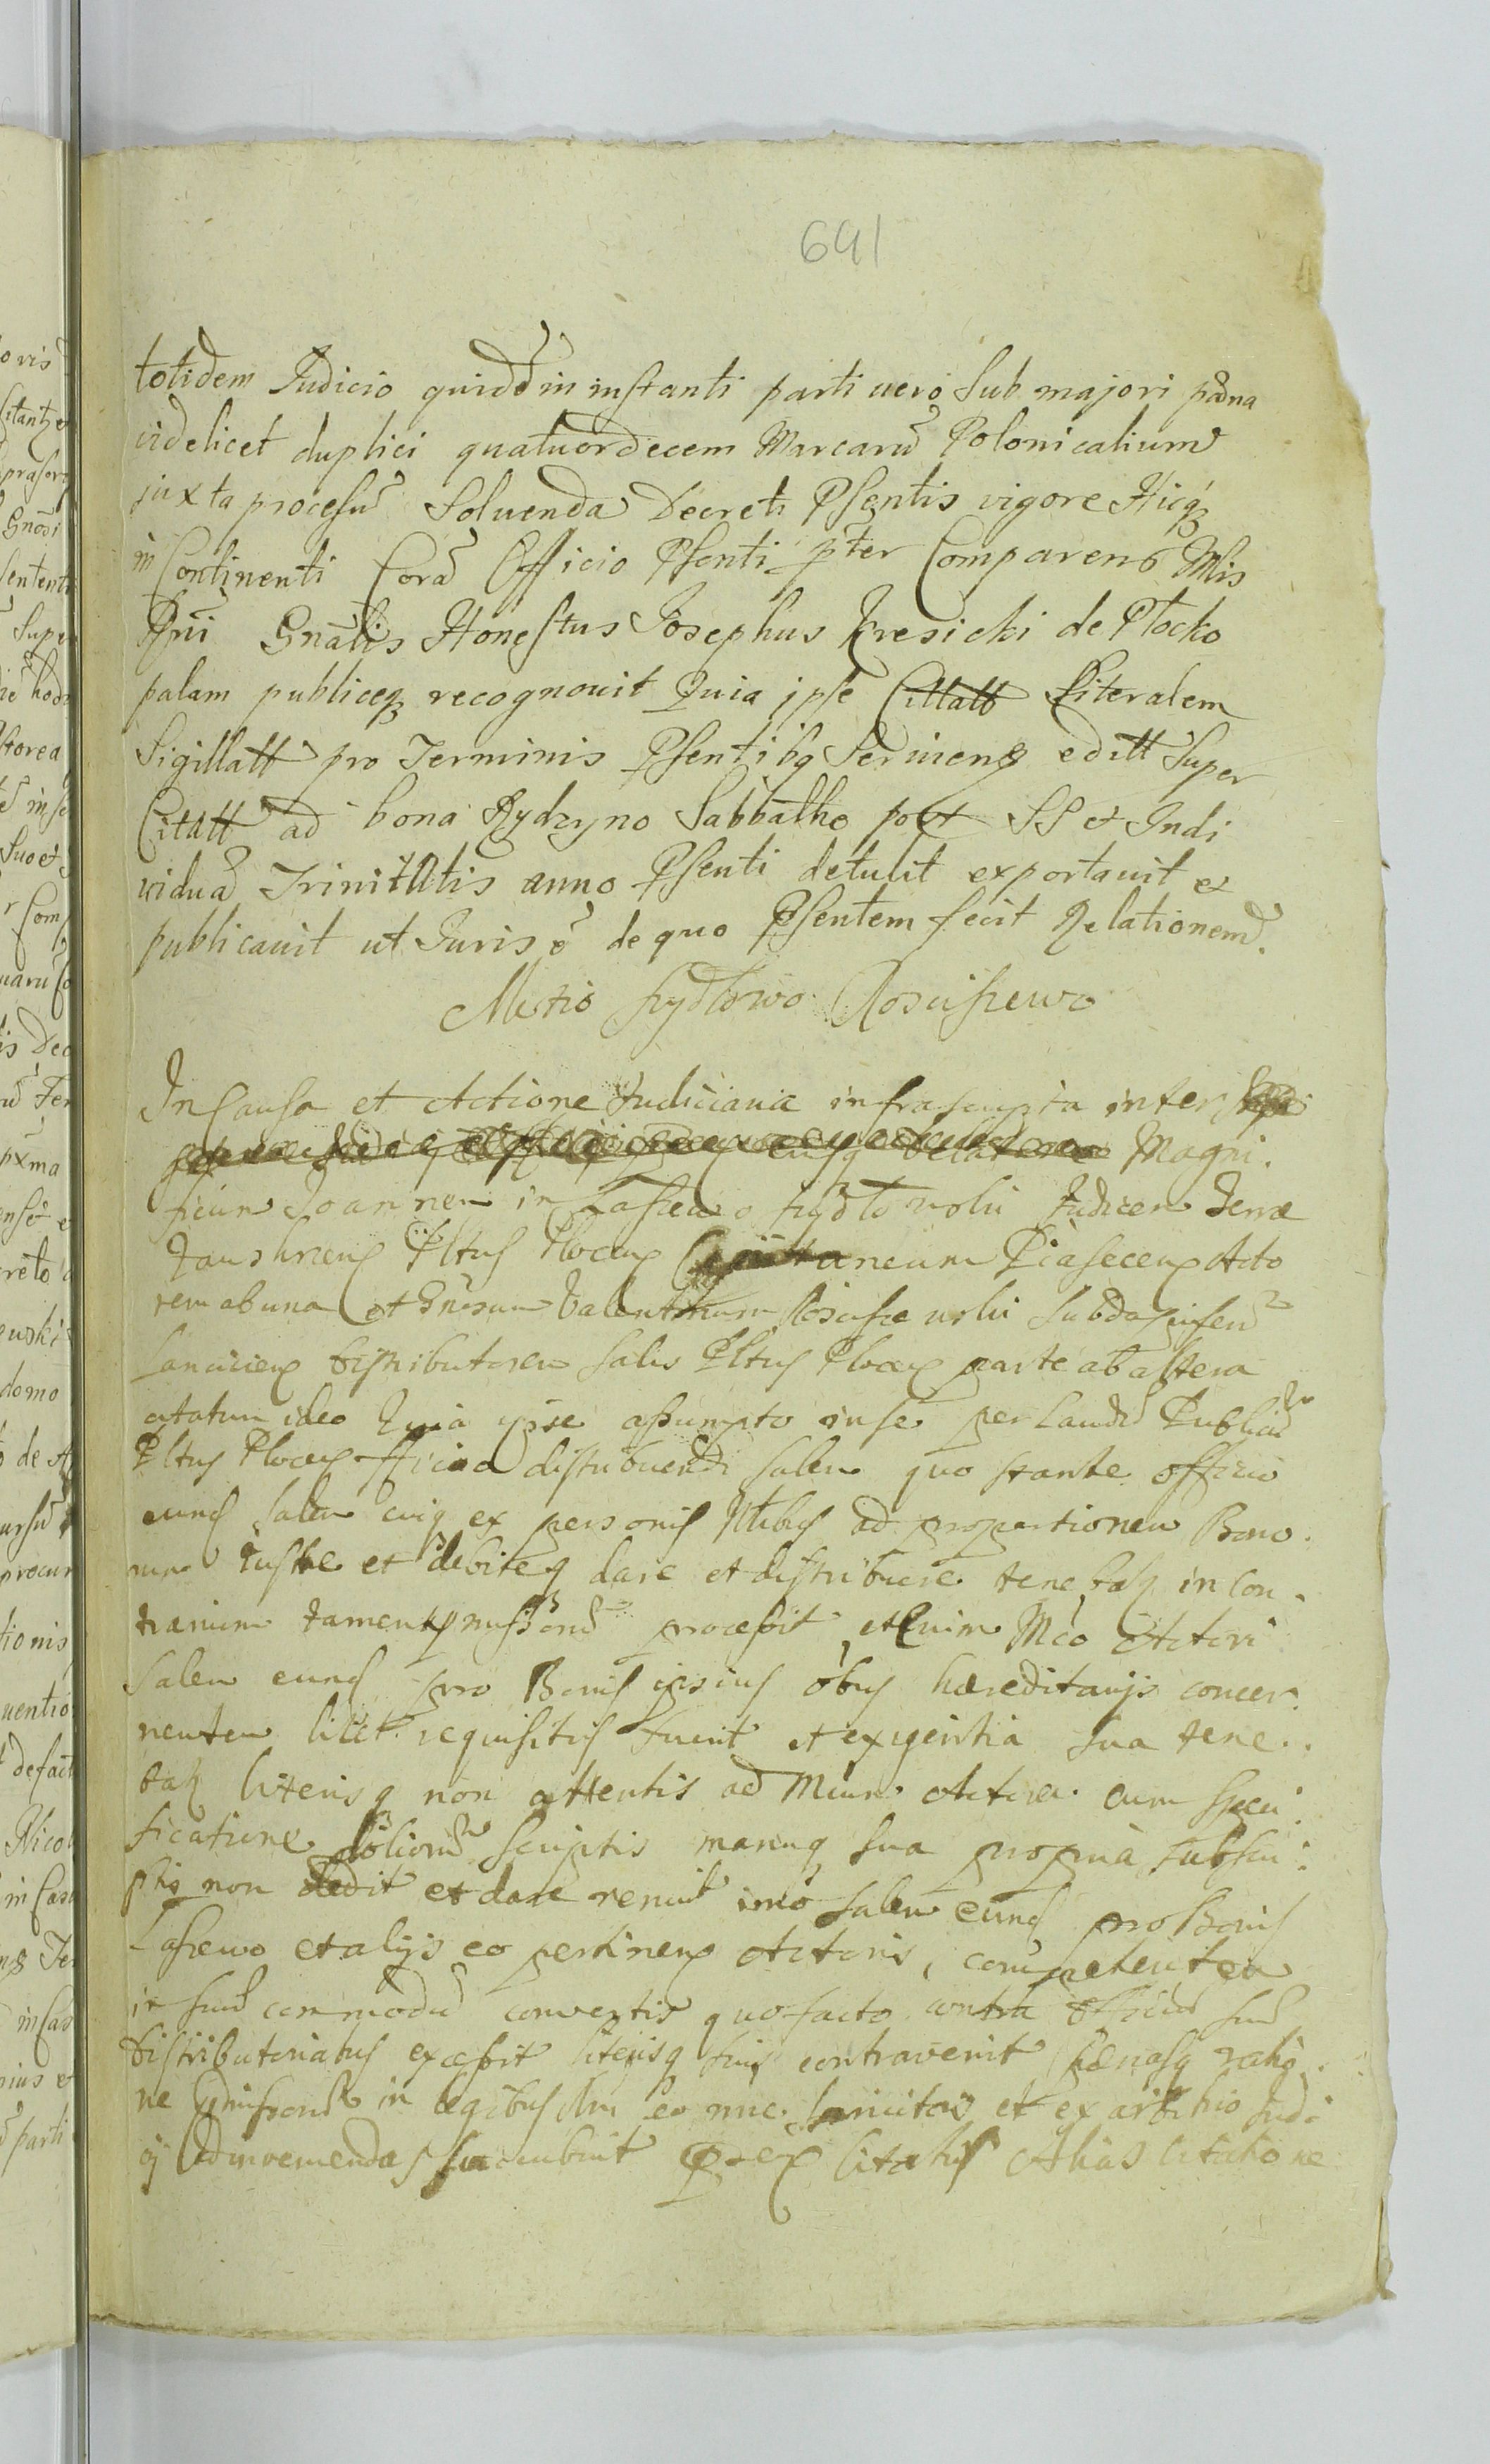 641
totidem Judicio quidd in instanti parti vero Sub majori pœna
videlicet duplici quatuordecem Marcarū Polonicalium
juxta processū Solvenda Decreti Psentis vigore Hicq3
in Continenti Corā Officio Psenti pter Comparens Mis
Gnalis Honestus Josephus Kresicki de Płocko
palam publiceq3 recognovit Quia ipse Cittatt Literalem
Sigillatt pro Terminis Psentibq Serviens editt Super
Citatt ad bona Rydzyno Sabbatho post SS et Indi
viduā Trinitatis anno Psenti detulit exportavit et
publicavit ut Juris ē de quo Psentem fecit Relationem.
Mctio Szydłowo Rosciszewo
In Causa et Actione Judiciaria infrascripta inter
Magni.
ficum Joannem in Łaszewo Szydłowski Judicem Terræ
Pltus Plocen Capitaneum Piasecen Acto
rem ab una et Gnosum Valentinum Rosciszewski Subdapiferū
Lancicien distributorem Salis Pltus Plocen parte ab altera
citatum ideo Quia ipse assumpto in se per Laudū Publicū
Pltus Plocen officio distribuendi Salem quo stante officio
eund Salem cuiq ex personis Ntibus ad proportionem Bono.
rum Juste et debiteq dare et distribuere tenebatz in Con.
trarium tamen pmissorū processit, et Enim Mco Actori
Salem eund pro Bonis ipsius obus hæreditarijs concer.
nentem licet requisitus fuerit et exigentia sua tene..
batz literisq non attentis ad Mcum Actorem cum speci
ficatione scriptis manuq sua propria subscri.
ptis non dedit et dare renuit imo Salem eund pro Bonis
Łaszewo et alijs eo pertinen Actoris, competentem
in suū commodū convertit quo facto contra officiū suū
distributoriatus excessit literisq suis contravenit pœnasq ratio.
ne pmissorū in legibus eo nne Sancitas et ex arbitrio Judi
cij adinvenendas succubuit Citatus Alias Citatione